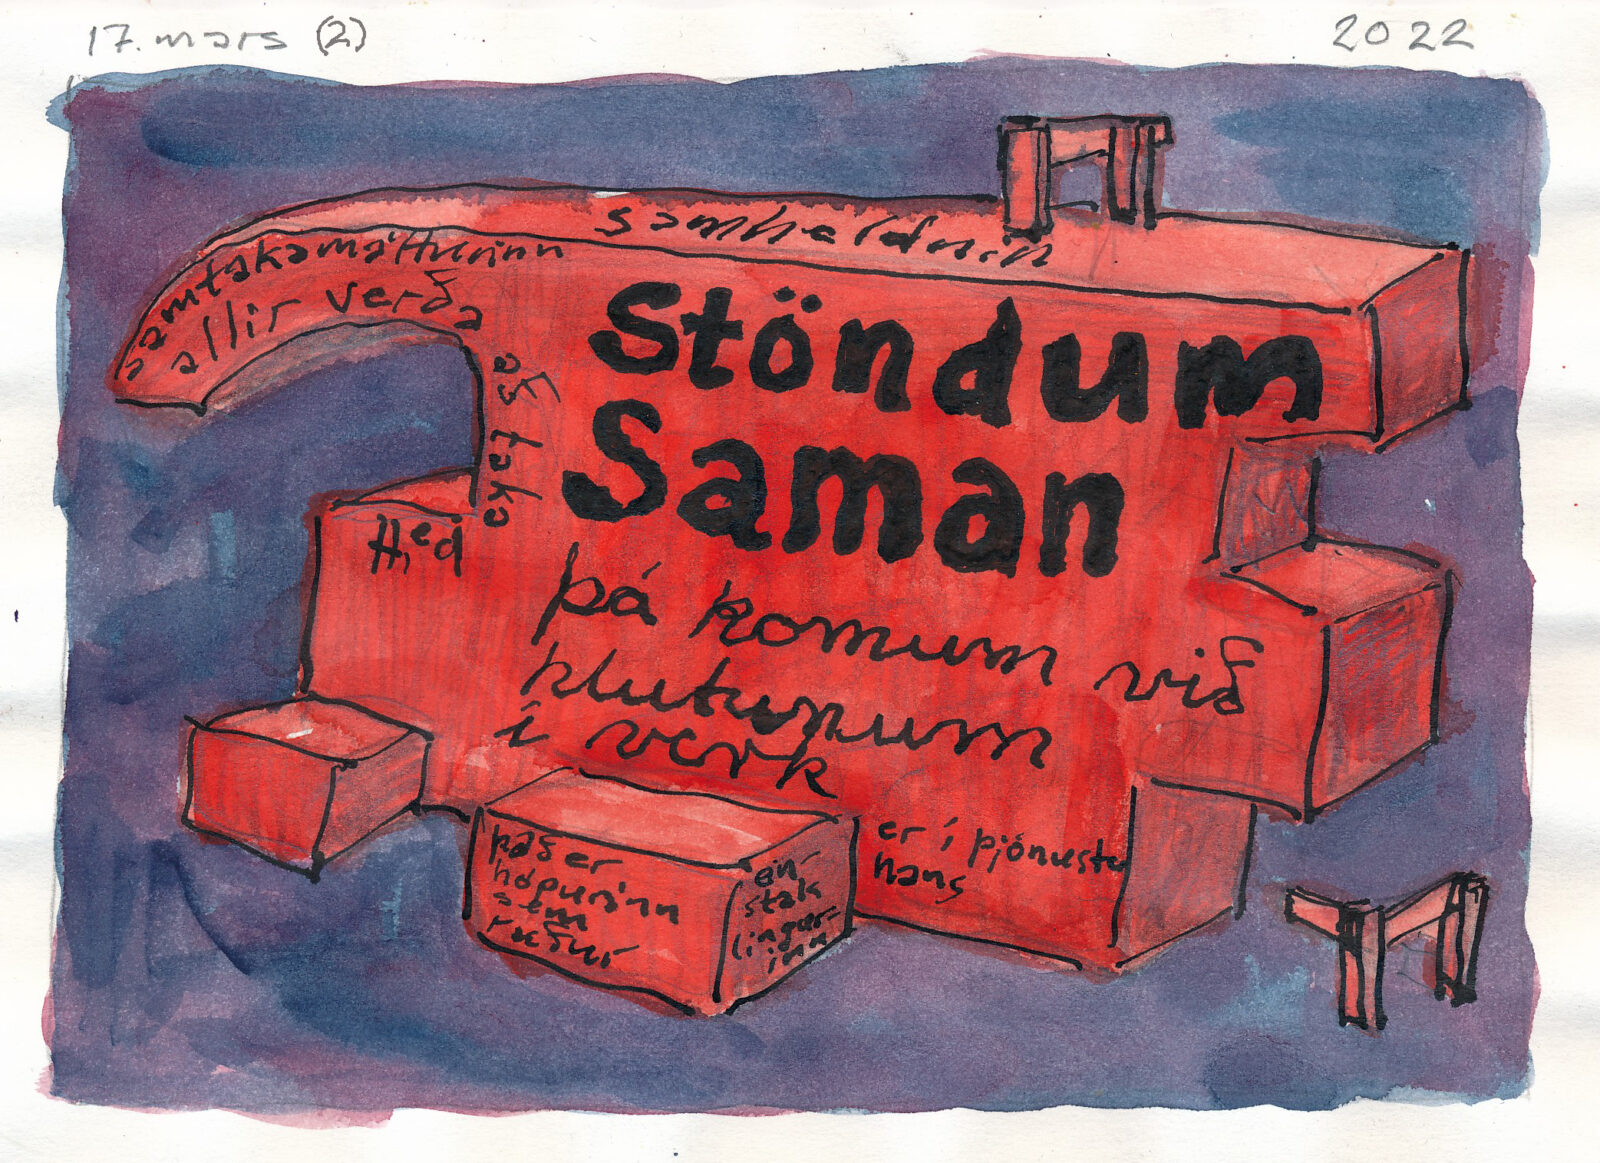 17. mars (2)
2022
samheldnin
samtakamátturinn
allir verða
að taka
Stöndum
Saman
þá komum við
klutunum
í verk
það er
hópurinn
sem
ræður
ein-
stak
lingur-
inn
er í þjónustu
hans